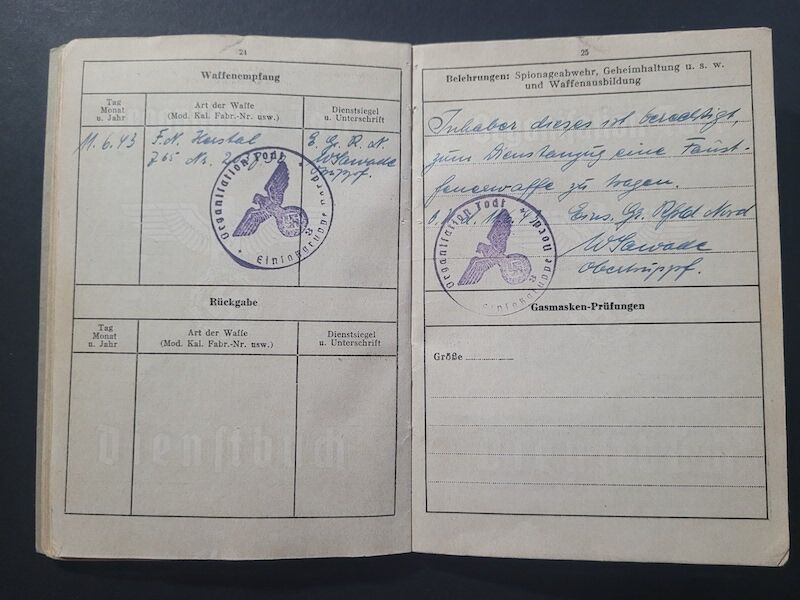 24
Waffenempfang
Tag
Monat
u. Jahr
Art der Waffe
(Mod. Kal. Fabr.-Nr. usw.)
Dienstsiegel
u. Unterschrift
11.6.43
F.N. Herstal
7,65 Nr.
E. G. R. N.
WSawade
Organisation Todt
Einsatzgruppe
Rückgabe
Tag
Monat
u. Jahr
Art der Waffe
(Mod. Kal. Fabr.-Nr. usw.)
Dienstsiegel
u. Unterschrift
Dienstbuch
25
Belehrungen: Spionageabwehr, Geheimhaltung u. s. w.
und Waffenausbildung
Inhaber dieses ist berechtigt,
zum Dienstanzug eine Faust-
feuerwaffe zu tragen.
Eins. Gr. Rfld Nord
WSawade
Obertruppf.
Organisation Todt
Einsatzgruppe
Gasmasken-Prüfungen
Größe
Dienstbuch